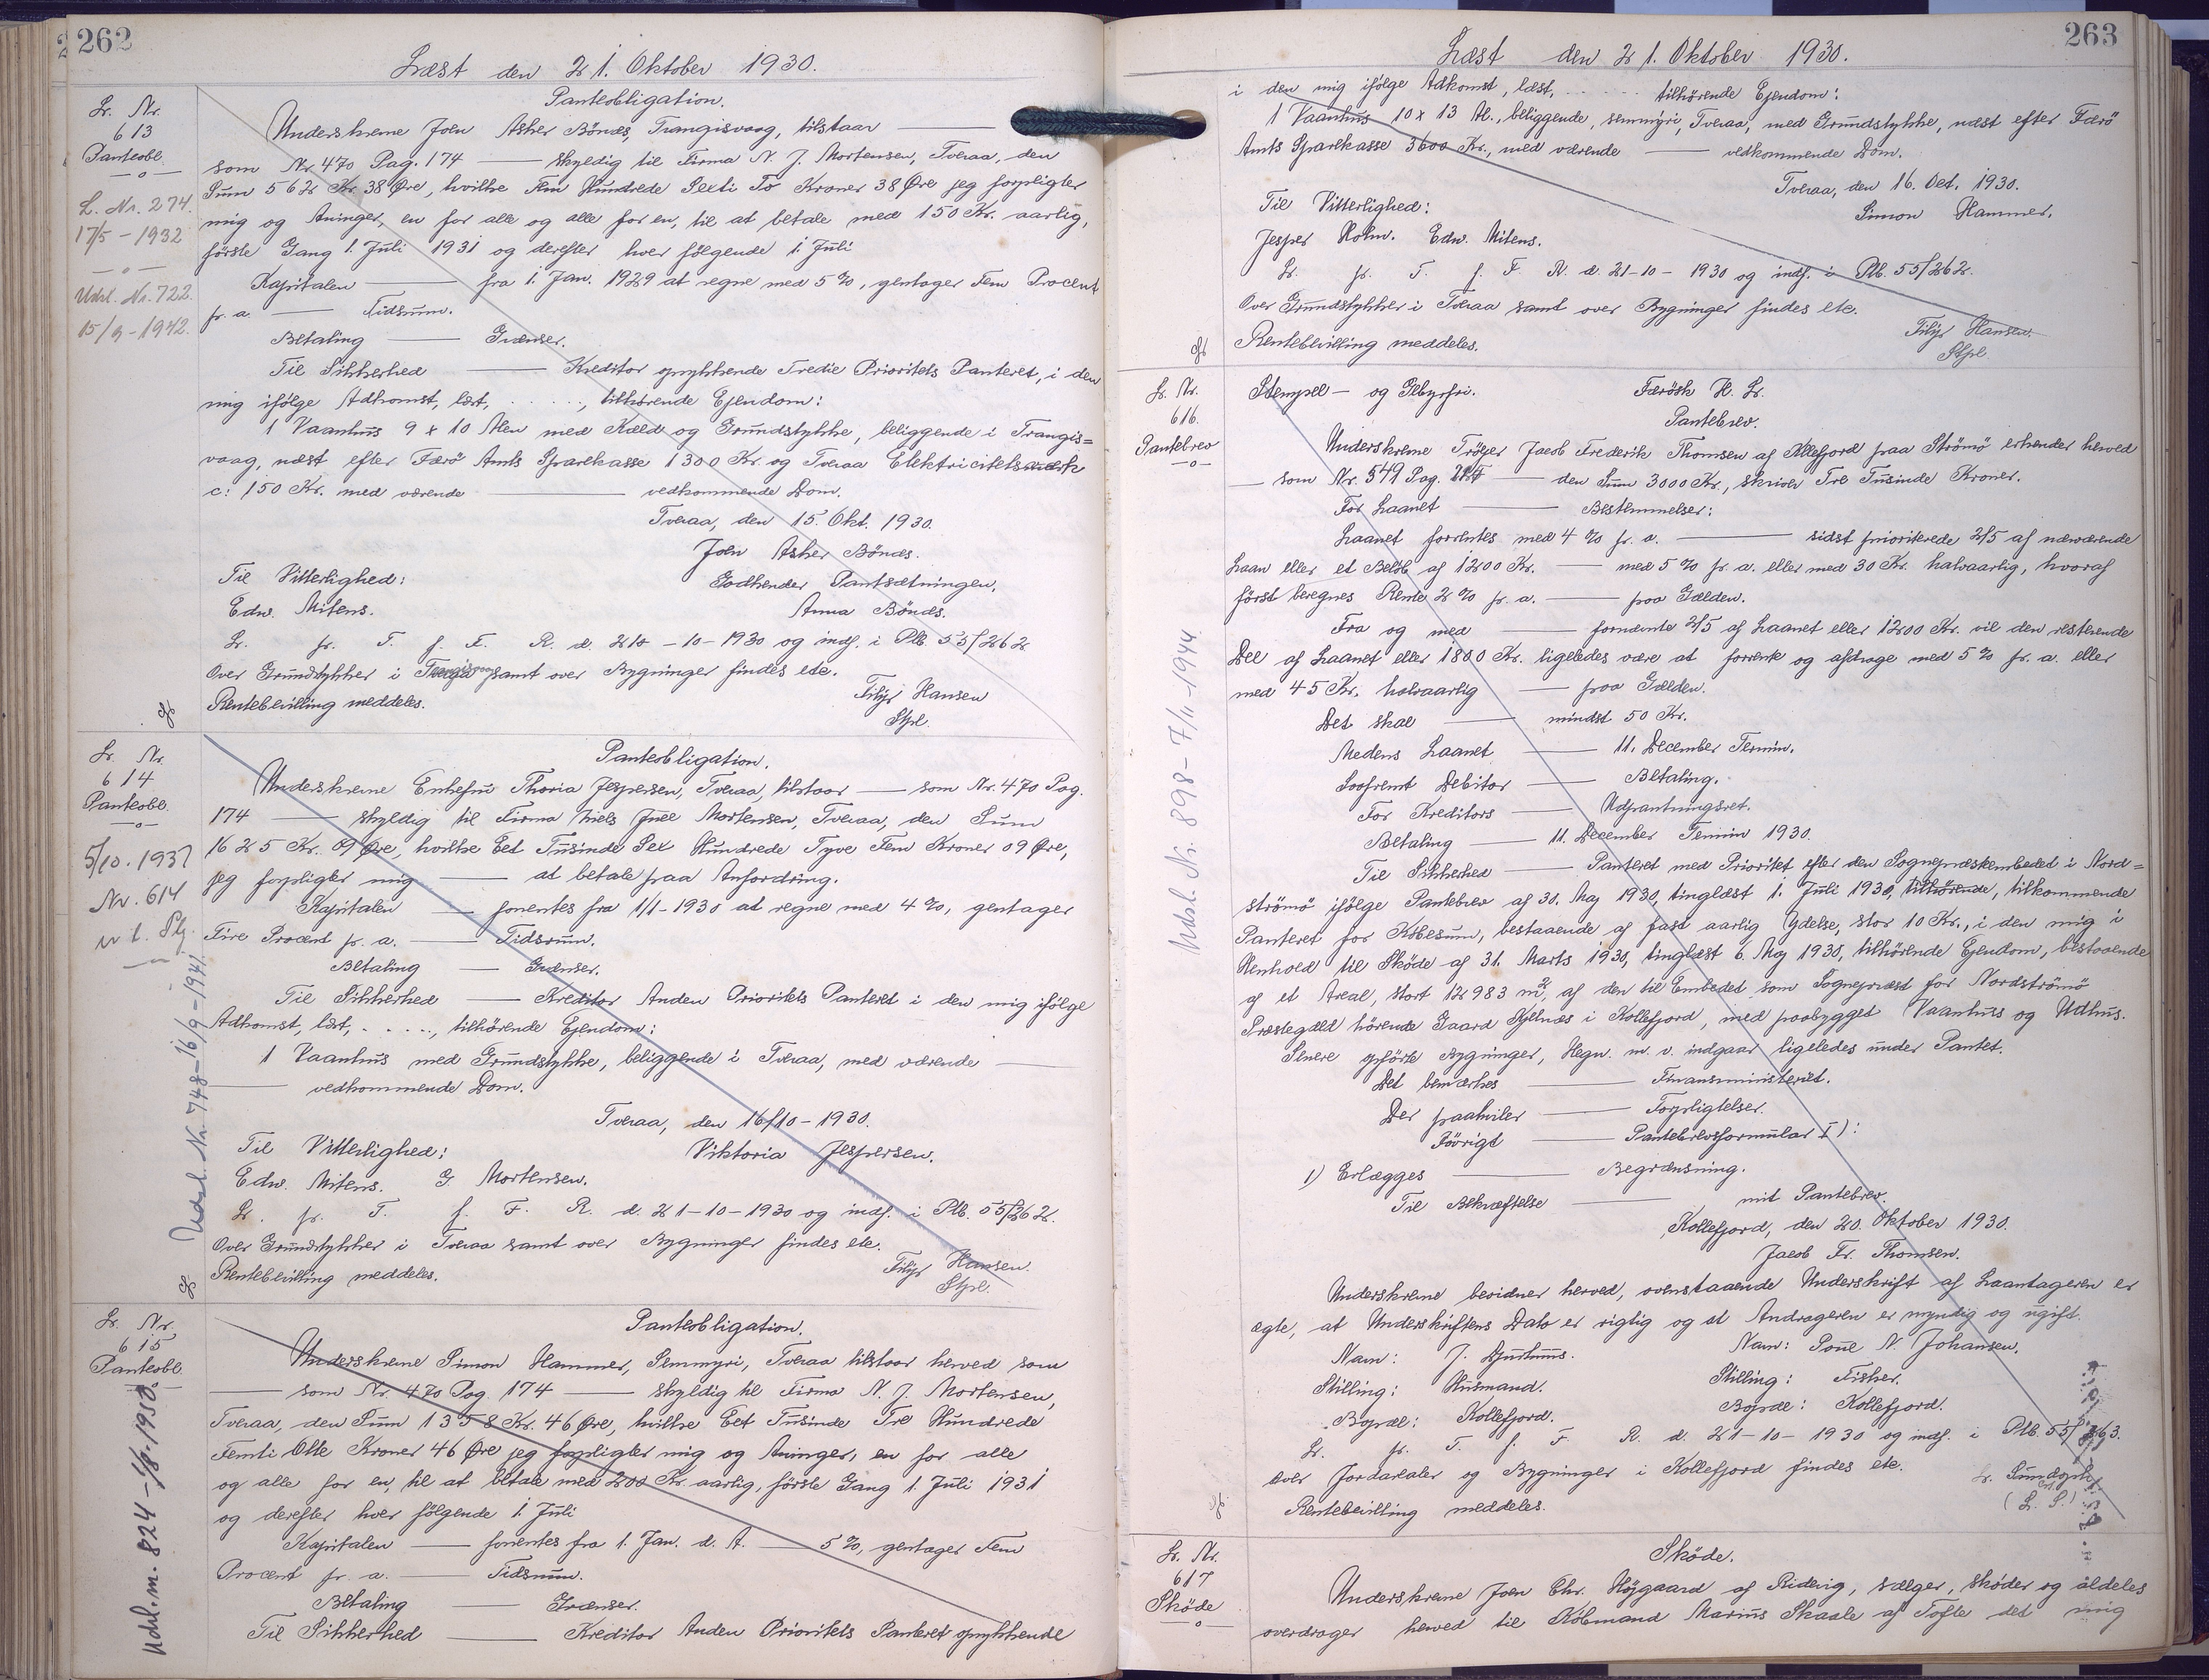 262
Læst den 21. Oktober 1930.
Lr. Nr.
613
Panteobl.
L. Nr. 274.
17/5 - 1932
Udsl. Nr. 722.
15/9 - 1942.
Panteobligation.
Underskrevne Joen Asher Bönæs, Trangisvaag, tilstaar ———
som Nr 470 Pag. 174 —— skyldig til Firma N. J. Mortensen, Tveraa, den
Sum 562 Kr. 38 Øre, hvilke Fem Hundrede Sexti To Kroner 38 Øre jeg forpligter
mig og Arvinger, en for alle og alle for en, til at betale med 150 Kr. aarlig,
förste Gang 1. Juli 1931 og derefter hver fölgende 1 Juli
Kapitalen —— fra 1. Jan. 1929 at regne med 5 %, gentager Fem Procent
pr. a. —— Tidsrum.
Betaling —— Grænser.
Til Sikkerhed —— Kreditor oprykkende Tredie Prioritets Panteret, i den
mig ifölge Adkomst, læst, . . . ., tilhörende Ejendom:
1 Vaanhus 9 x 10 Alen med Kæld og Grundstykke, beliggende i Trangis=
vaag, næst efter Færö Amts Sparekasse 1300 Kr. og Tveraa Elektricitetsværk
c: 150 Kr. med værende ——— vedkommende Dom.
Tveraa, den 15. Okt. 1930.
Joen Asher Bönæs.
Til Vitterlighed: Godkender Pantsætningen,
Edw. Mitens. Anna Bönæs.
Lr. pr. T. f. F. R. d. 21 - 10 - 1930 og indf. i Ptb. 55/262
Over Grundstykker i Trangisvaag samt over Bygninger findes etc.
Rentebevilling meddeles. Filip Hansen
Stpl.
Lr. Nr.
614
Panteobl.
5/10. 1937
Nr. 614
Udsl. Nr. 748 - 16/9 - 1941
Panteobligation.
Underskrevne Enkefru Thoria Jespersen, Tveraa, tilstaar —— som Nr. 470 Pag.
174 —— skyldig til Firma Niels Juel Mortensen, Tveraa, den Sum
1625 Kr. 09 Øre, hvilke Eet Tusinde Sex Hundrede Tyve Fem Kroner 09 Øre,
jeg forpligter mig —— at betale paa Anfordring.
Kapitalen —— forrentes fra 1/1 - 1930 at regne med 4 %, gentager
Fire Procent pr. a. —— Tidsrum.
Betaling —— Grænser.
Til Sikkerhed —— Kreditor Anden Prioritets Panteret i den mig ifölge
Adkomst, læst, . . . ., tilhörende Ejendom:
1 Vaanhus med Grundstykke, beliggende i Tveraa, med værende ———
——— vedkommende Dom.
Tveraa, den 16/10 - 1930.
Til Vitterlighed: Viktoria Jespersen.
Edw. Mitens. G. Mortensen.
Lr. pr. T. f. F. R. d. 21 - 10 - 1930 og indf. i Ptb. 55/262.
Over Grundstykker i Tveraa samt over Bygninger findes etc.
Rentebevilling meddeles. Filip Hansen.
Stpl.
Lr. Nr.
615
Panteobl.
Panteobligation.
Underskrevne Simon Hammer, Semmyri, Tveraa tilstaar herved som
—— som Nr. 470 Pag. 174 —— skyldig til Firma N. J. Mortensen,
Tveraa, den Sum 1358 Kr. 46 Øre, hvilke Eet Tusinde Tre Hundrede
Femti Otte Kroner 46 Øre jeg forpligter mig og Arvinger, en for alle
og alle for en, til at betale med 200 Kr. aarlig, förste Gang 1. Juli 1931
og derefter hver fölgende 1. Juli
Kapitalen —— forrentes fra 1. Jan. d. A. —— 5 %, gentager Fem
Procent pr. a. —— Tidsrum.
Betaling —— Grænser.
Til Sikkerhed —— Kreditor Anden Prioritets Panteret oprykkende
263
Læst den 21. Oktober 1930.
i den mig ifölge Adkomst, læst, . . . . tilhörende Ejendom:
1 Vaanhus 10 x 13 Al., beliggende, Semmyri, Tveraa, med Grundstykke, næst efter Færö
Amts Sparekasse 3600 Kr., med værende —— vedkommende Dom.
Tveraa, den 16. Oct. 1930.
Til Vitterlighed: Simon Hammer.
Jesper Holm. Edw. Mitens.
Lr. pr. T. f. F. R. d. 21 - 10 - 1930 og indf. i Ptb. 55/262.
Over Grundstykker i Tveraa samt over Bygninger findes etc.
Rentebevilling meddeles. Filip Hansen.
Stpl.
Lr. Nr.
616.
Pantebrev
Udsl. Nr. 898 - 7/11 - 1944
Stempel - og Gebyrfri. Færösk H. Lr.
Pantebrev.
Underskrevne Tröjer Jacob Frederik Thomsen af Kollefjord paa Strömö erkender herved
—— som Nr. 549 Pag. —— den Sum 3000 Kr., skriver Tre Tusinde Kroner.
For Laanet —— Bestemmelser:
Laanet forrentes med 4 % pr. a. ——— sidst prioriterede 2/5 af nærværende
Laan eller et Belöb af 1200 Kr. —— med 5 % pr. a. eller med 30 Kr. halvaarlig, hvoraf
först beregnes Rente 2 % pr. a. —— paa Gælden.
Fra og med —— fornævnte 2/5 af Laanet eller 1200 Kr. vil den resterende
Del af Laanet eller 1800 Kr. ligeledes være at forrente og afdrage med 5 % pr. a. eller
med 45 Kr. halvaarlig —— paa Gælden.
Det skal —— mindst 50 Kr.
Medens Laanet —— 11. December Termin.
Saafremt Debitor —— Betaling.
For Kreditors —— Udpantningsret.
Betaling —— 11. December Termin 1930.
Til Sikkerhed —— Panteret med Prioritet efter den Sognepræsteembedet i Nord=
strömö ifölge Pantebrev af 30. Maj 1930, tinglæst 1. Juli 1930, tilhörende, tilkommende
Panteret for Köbesum, bestaaende af fast aarlig Ydelse, stor 10 Kr., i den mig i
Henhold til Sköde af 31. Marts 1930, tinglæst 6. Maj 1930, tilhörende Ejendom, bestaaende
af et Areal, stort 12983 m², af den til Embedet som Sognepræst for Nordströmö
Præstegæld hörende Gaard Kjelnæs i Kollefjord, med paabygget Vaanhus og Udhus.
Senere opförte Bygninger, Hegn m. v. indgaar ligeledes under Pantet.
Det bemærkes —— Finansministeriet.
Der paahviler —— Forpligtelser.
Iövrigt —— Pantebrevsformular I):
1) Erlægges —— Begrænsning.
Til Bekræftelse —— mit Pantebrev.
Kollefjord, den 20. Oktober 1930.
Jacob Fr. Thomsen.
Underskrevne bevidner herved, ovenstaaende Underskrift af Laantageren er
ægte, at Underskriftens Dato er rigtig og at Andrageren er myndig og ugift.
Navn: J. Djurhuus. Navn: Poul N. Johansen.
Stilling: Husmand. Stilling: Fisker.
Bopæl: Kollefjord. Bopæl: Kollefjord.
Lr. pr. T. f. F. R. d. 21 - 10 - 1930 og indf. i Ptb. 55/263.
Over Jordarealer og Bygninger i Kollefjord findes etc.
Rentebevilling meddeles. (L. S.)
Lr. Nr.
617
Sköde
Sköde.
Underskrevne Joen Chr. Höjgaard af Ridevig, sælger, sköder og aldeles
overdrager herved til Köbmand Marius Skaale af Tofte det mig
Udsl. m. 824 - 1/8. 1950